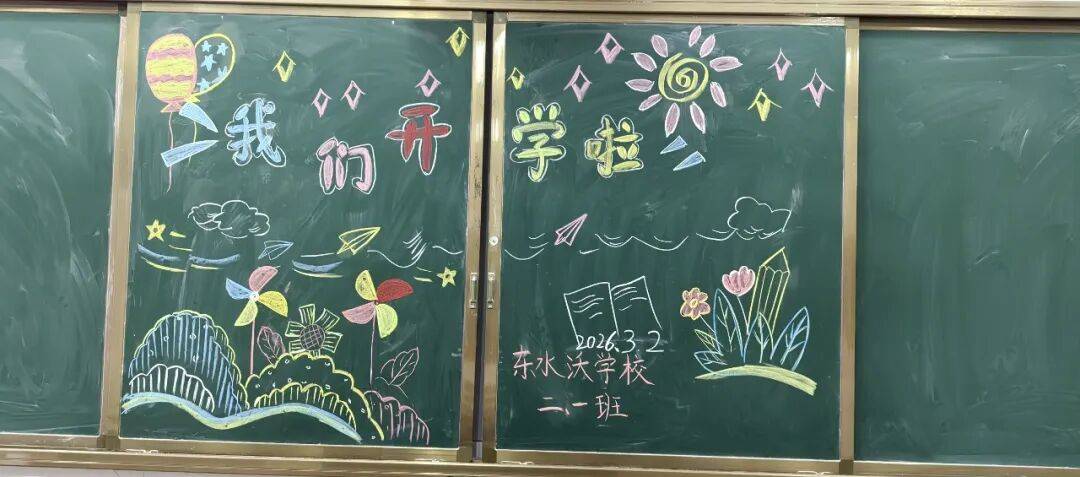 我们开学啦
2026.3.2
东水沃学校
二.一班